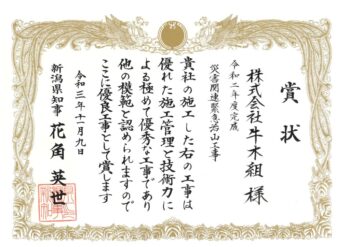 賞状
株式会社牛木組様
令和二年度完成
災害関連緊急治山工事
貴社の施工した右の工事は
優れた施工管理と技術力に
よる極めて優秀な工事であり
他の模範と認められますので
ここに優良工事として賞します
令和三年十一月九日
新潟県知事 花角英世